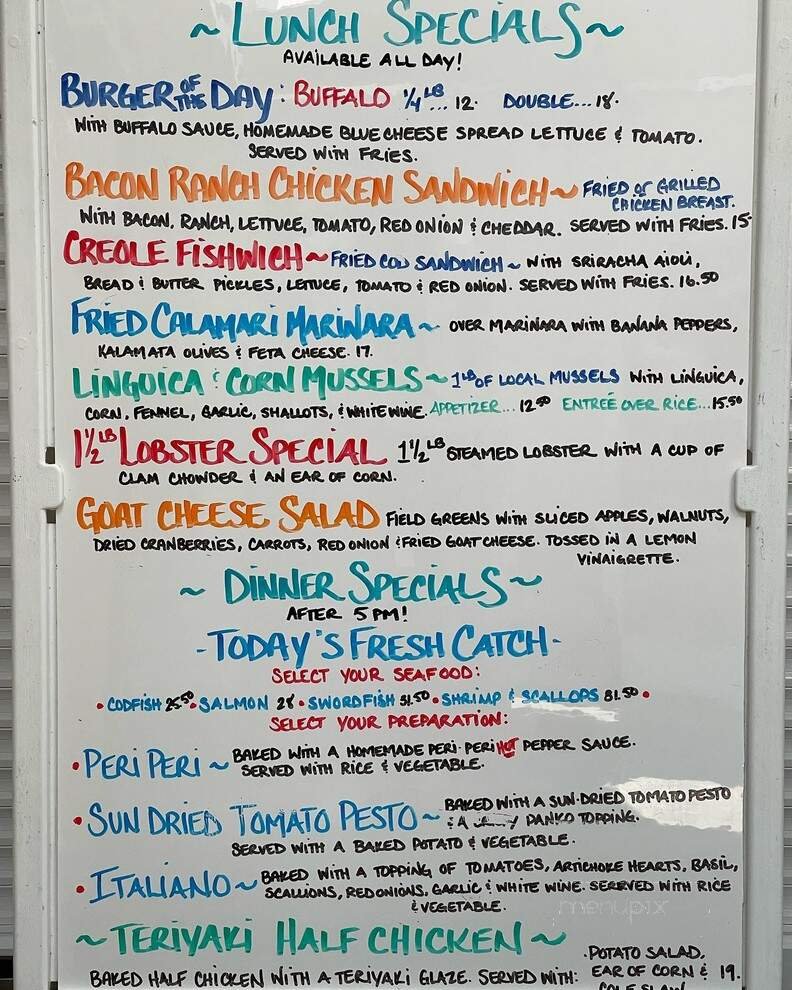 ~ LUNCH SPECIALS ~
AVAILABLE ALL DAY!
BURGER OF THE DAY: BUFFALO 1/4 LB ... 12. DOUBLE... 18.
WITH BUFFALO SAUCE, HOMEMADE BLUE CHEESE SPREAD LETTUCE & TOMATO.
SERVED WITH FRIES.
BACON RANCH CHICKEN SANDWICH ~ FRIED or GRILLED
CHICKEN BREAST.
WITH BACON, RANCH, LETTUCE, TOMATO, RED ONION & CHEDDAR. SERVED WITH FRIES. 15-
CREOLE FISHWICH ~ FRIED COD SANDWICH ~ WITH SRIRACHA AIOLI,
BREAD & BUTTER PICKLES, LETTUCE, TOMATO & RED ONION. SERVED WITH FRIES. 16.50
FRIED CALAMARI MARINARA ~ OVER MARINARA WITH BANANA PEPPERS,
KALAMATA OLIVES & FETA CHEESE. 17.
LINGUICA & CORN MUSSELS ~ 1 LB OF LOCAL MUSSELS WITH LINGUICA,
CORN, FENNEL, GARLIC, SHALLOTS, & WHITE WINE. APPETIZER... 12.50 ENTRÉE OVER RICE... 15.50
1 1/2 LB LOBSTER SPECIAL 1 1/2 LB STEAMED LOBSTER WITH A CUP OF
CLAM CHOWDER & AN EAR OF CORN.
GOAT CHEESE SALAD FIELD GREENS WITH SLICED APPLES, WALNUTS,
DRIED CRANBERRIES, CARROTS, RED ONION & FRIED GOAT CHEESE. TOSSED IN A LEMON
VINAIGRETTE.
~ DINNER SPECIALS ~
AFTER 5 PM!
- TODAY'S FRESH CATCH -
SELECT YOUR SEAFOOD:
• CODFISH 25.50 • SALMON 28 • SWORDFISH 31.50 • SHRIMP & SCALLOPS 31.50 •
SELECT YOUR PREPARATION:
• PERI PERI ~ BAKED WITH A HOMEMADE PERI-PERI HOT PEPPER SAUCE.
SERVED WITH RICE & VEGETABLE.
• SUN DRIED TOMATO PESTO ~ BAKED WITH A SUN-DRIED TOMATO PESTO
& A PANKO TOPPING.
SERVED WITH A BAKED POTATO & VEGETABLE.
• ITALIANO ~ BAKED WITH A TOPPING OF TOMATOES, ARTICHOKE HEARTS, BASIL,
SCALLIONS, RED ONIONS, GARLIC & WHITE WINE. SERVED WITH RICE
& VEGETABLE.
menupix
~ TERIYAKI HALF CHICKEN ~
BAKED HALF CHICKEN WITH A TERIYAKI GLAZE. SERVED WITH: • POTATO SALAD,
EAR OF CORN & 19.
COLE SLAW